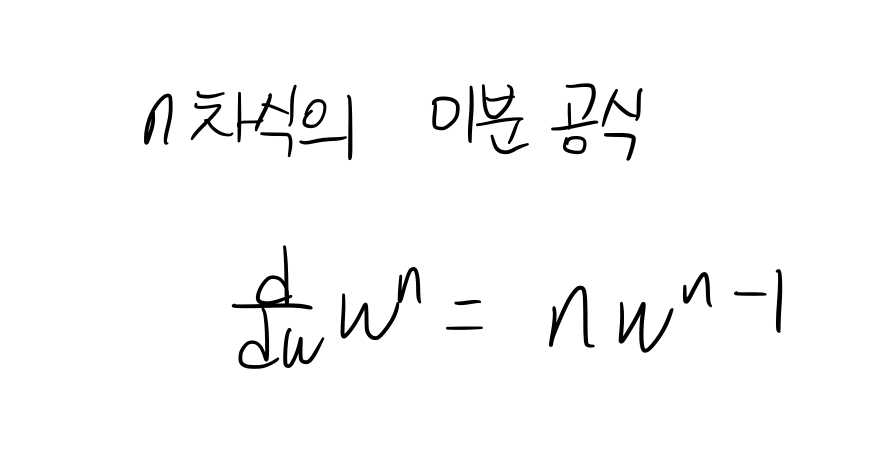 n차식의 미분 공식
d/dw w^n = n w^{n-1}